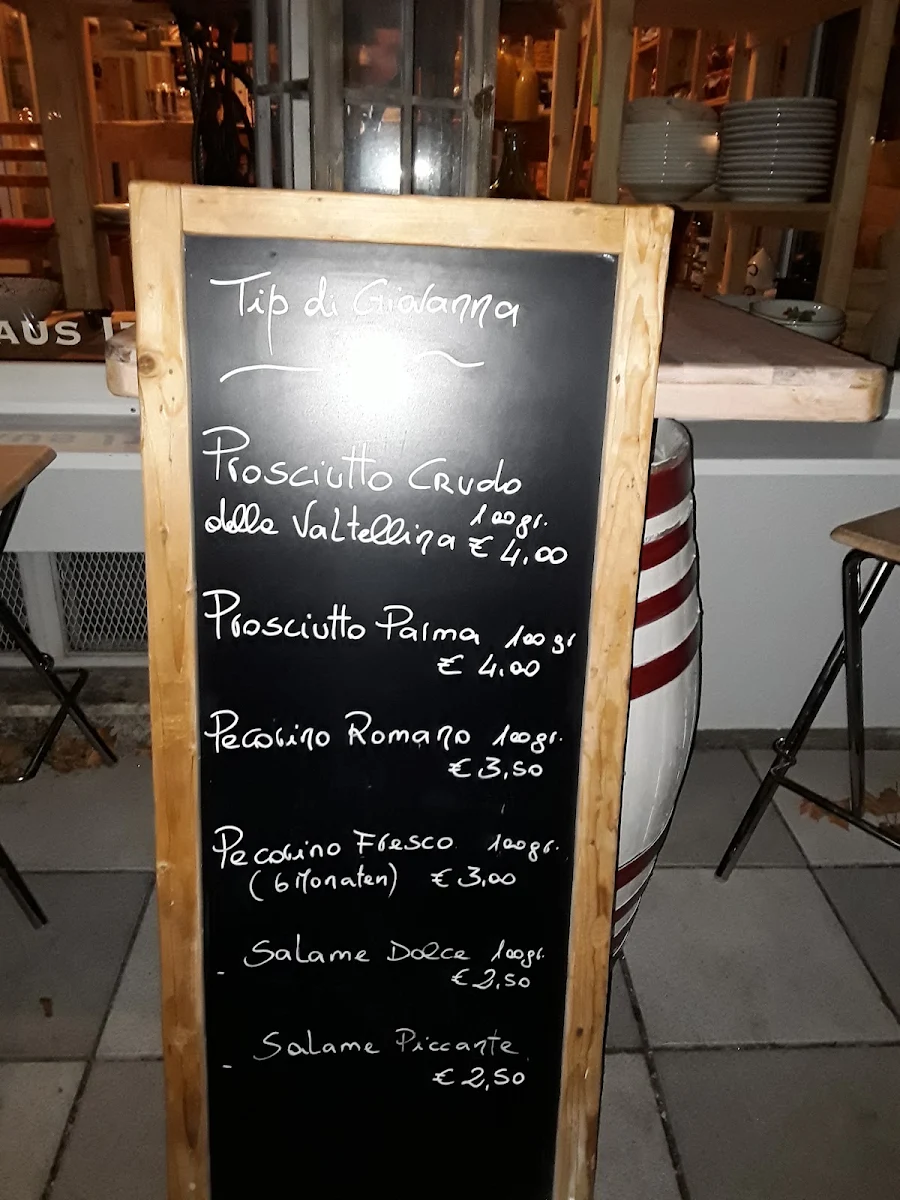 AUS
Tip di Giovanna
Prosciutto Crudo
della Valtellina 100gr.
€ 4.00
Prosciutto Parma 100gr
€ 4.00
Pecorino Romano 100gr.
€ 3,50
Pecorino Fresco 100gr.
(6 Monaten) € 3,00
- Salame Dolce 100gr.
€ 2,50
- Salame Piccante
€ 2,50